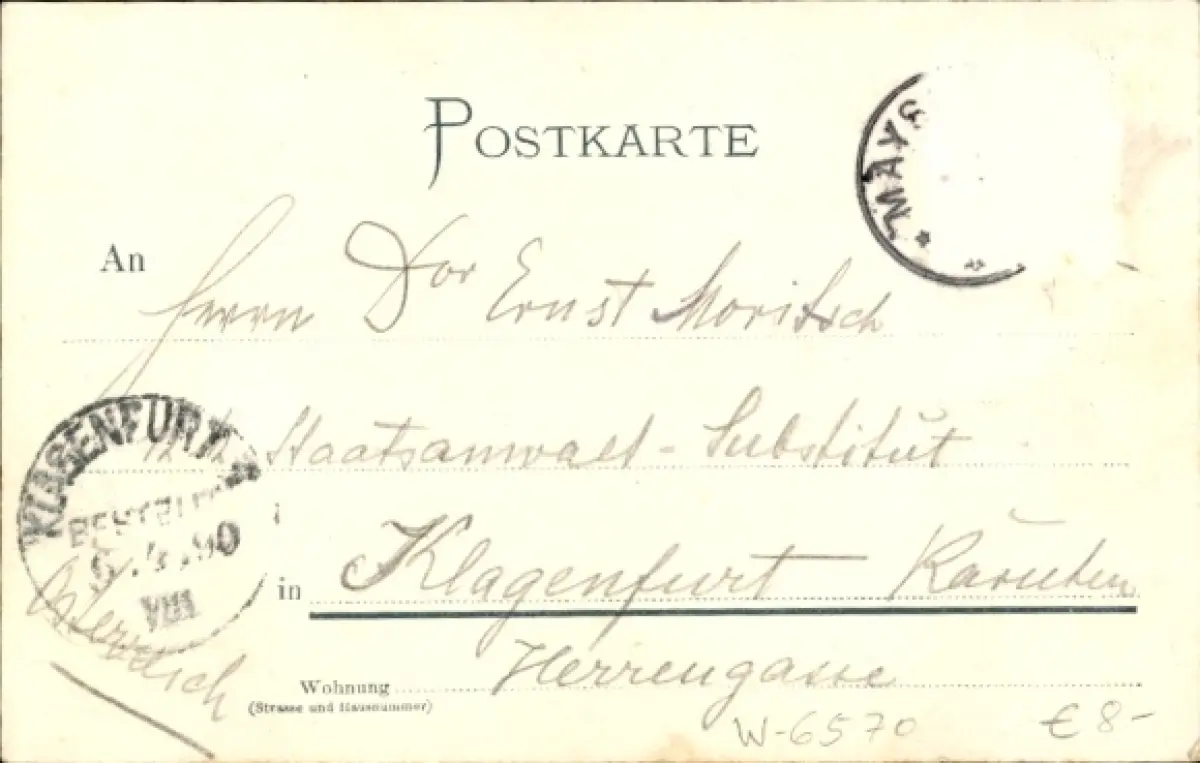 POSTKARTE
MAY
An Herrn Dor Ernst Moritsch
KLAGENFURT
k k Staatsanwalt-Substitut
BESTELLT
90
VIII
in Klagenfurt - Kärnten
Österreich
Wohnung Herrengasse
(Strasse und Hausnummer)
W-6570
€ 8-